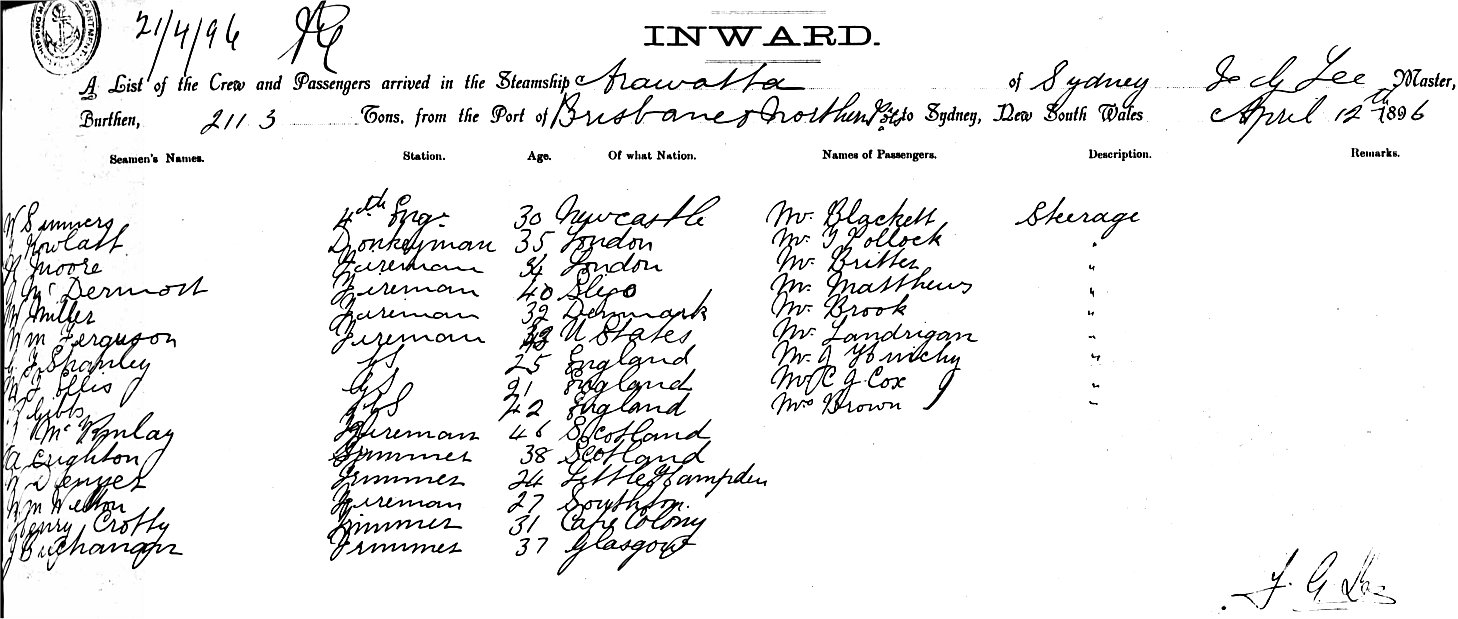 21/4/96
INWARD.
A List of the Crew and Passengers arrived in the Steamship Arawatta of Sydney Lee Master,
Burthen, 2113 Tons, from the Port of Brisbane & Northern Pts to Sydney, New South Wales April 12 1896
Seamen's Names. Station. Age. Of what Nation. Names of Passengers. Description. Remarks.
Summers 4th Engr 30 Newcastle Mr. Blackett Steerage
Rowlatt Donkeyman 35 London Mr. Pollock "
Moore Fireman 34 London Mr. Britter "
McDermott Fireman 40 Sligo Mr. Matthews "
W Miller Fireman 32 Denmark Mr. Brook "
Wm Ferguson Fireman U States Mr. Landrigan "
25 England Mr. J "
Ellis GS 21 England Mr C J Cox "
Gibbs 42 England Mrs Brown "
McKinlay Fireman 46 Scotland
A Crighton Trimmer 38 Scotland
Denyer Trimmer 24 Little Hampden
Wm Fireman 27 Southton.
Henry Crotty Trimmer 31 Cape Colony
J Buchanan Trimmer 37 Glasgow